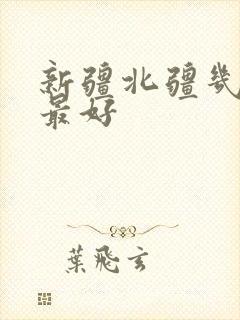 新疆北疆幾
最好
葉飛玄